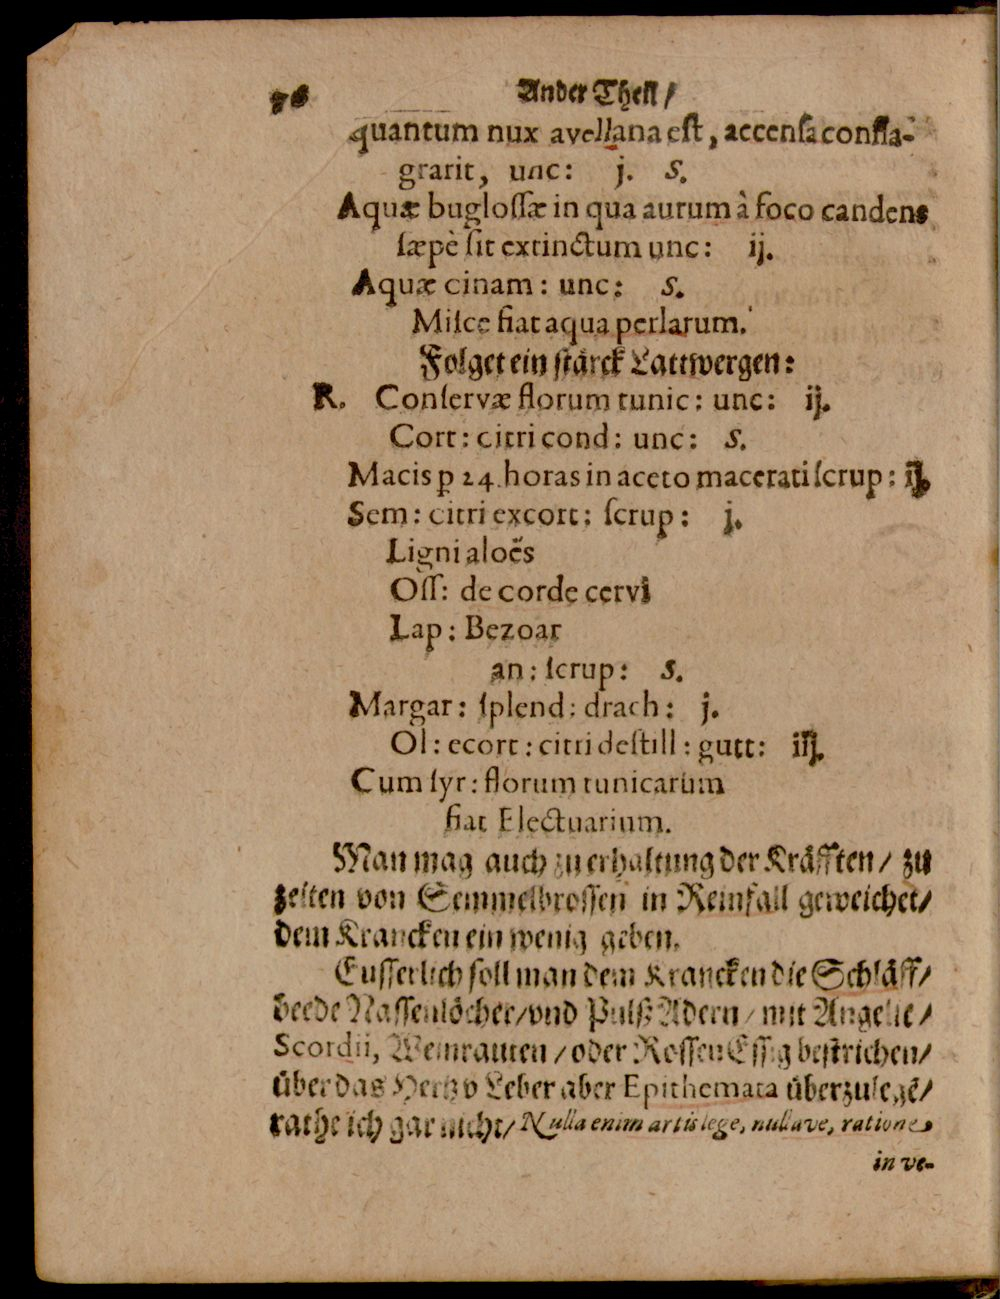 76 Ander Theil /
quantum nux avellana eſt, accenſa confla-
grarit, unc: j. S.
Aquæ bugloſſæ in qua aurum à foco candens
ſæpè ſit extinctum unc: ij.
Aquæ cinam: unc: S.
Miſce fiat aqua perlarum.
Folget ein ſtaͤrck Lattwergen:
R. Conſervæ florum tunic: unc: ij.
Cort: citri cond: unc: S.
Macis p 24. horas in aceto macerati ſcrup: ij.
Sem: citri excort: ſcrup: j.
Ligni aloës
Oſſ: de corde cervi
Lap: Bezoar
an: ſcrup: S.
Margar: ſplend: drach: j.
Ol: ecort: citri deſtill: gutt: iij.
Cum ſyr: florum tunicarum
fiat Electuarium.
Man mag auch zu erhaltung der Kraͤfften / zu
zeiten von Semmelbroſſen in Reinfall geweichet /
dem Krancken ein wenig geben.
Euſſerlich ſoll man dem Krancken die Schlaͤff /
beede Naſſenloͤcher / vnd Pulß Adern / mit Angelic /
Scordii, Weinrauten / oder Roſſen Eſſig beſtrichen /
uͤber das Hertz v Leber aber Epithemata uͤberzulegē /
rathe ich gar nicht / Nulla enim artis lege, nullave, ratione
in ve-